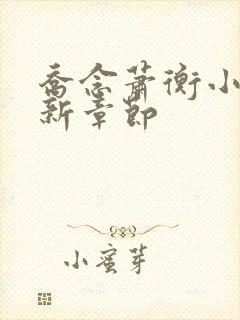 乔念萧衡小
新章节
小蜜芽